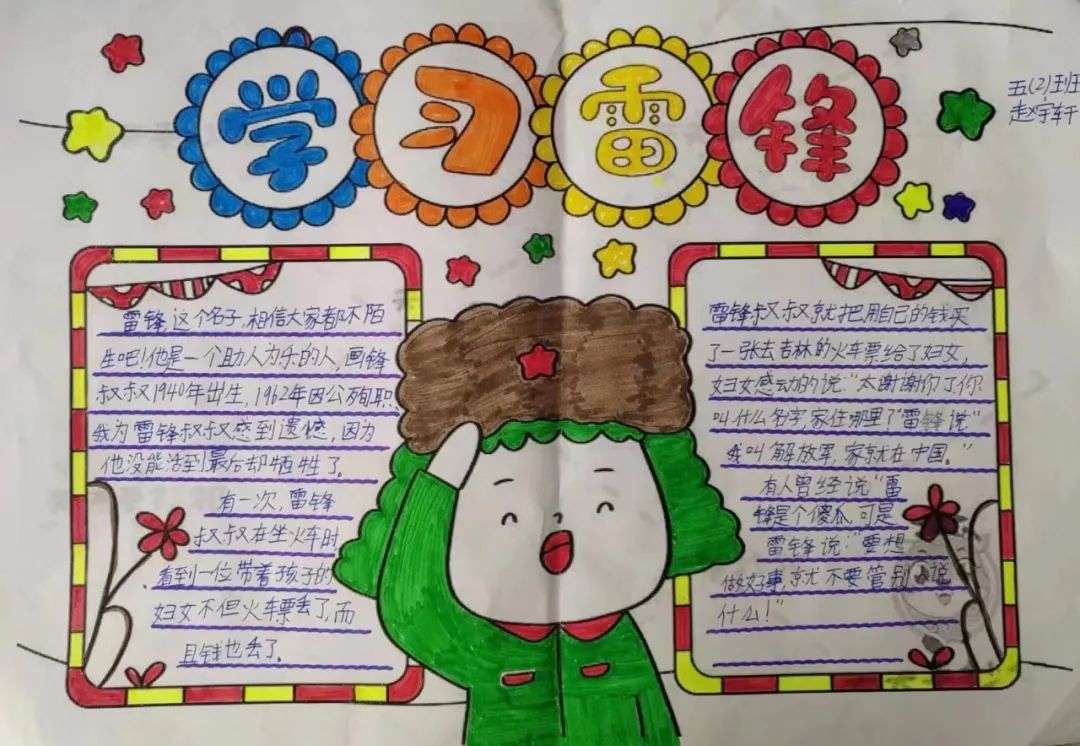 学习雷锋
五(2)班
赵宇轩
雷锋这个名子,相信大家都不陌
生吧!他是一个助人为乐的人,画锋
叔叔1940年出生,1962年因公殉职。
我为雷锋叔叔感到遗憾,因为
他没能活到最后却牺牲了。
有一次,雷锋
叔叔在坐火车时
看到一位带着孩子的
妇女不但火车票丢了,而
且钱也丢了。
雷锋叔叔就把用自己的钱买
了一张去吉林的火车票给了妇女,
妇女感动的说:"太谢谢你了你
叫什么名字,家住哪里?"雷锋说"
我叫解放军,家就在中国。"
有人曾经说"雷
锋是个傻瓜,可是
雷锋说:"要想
做好事,就不要管别人说
什么!"